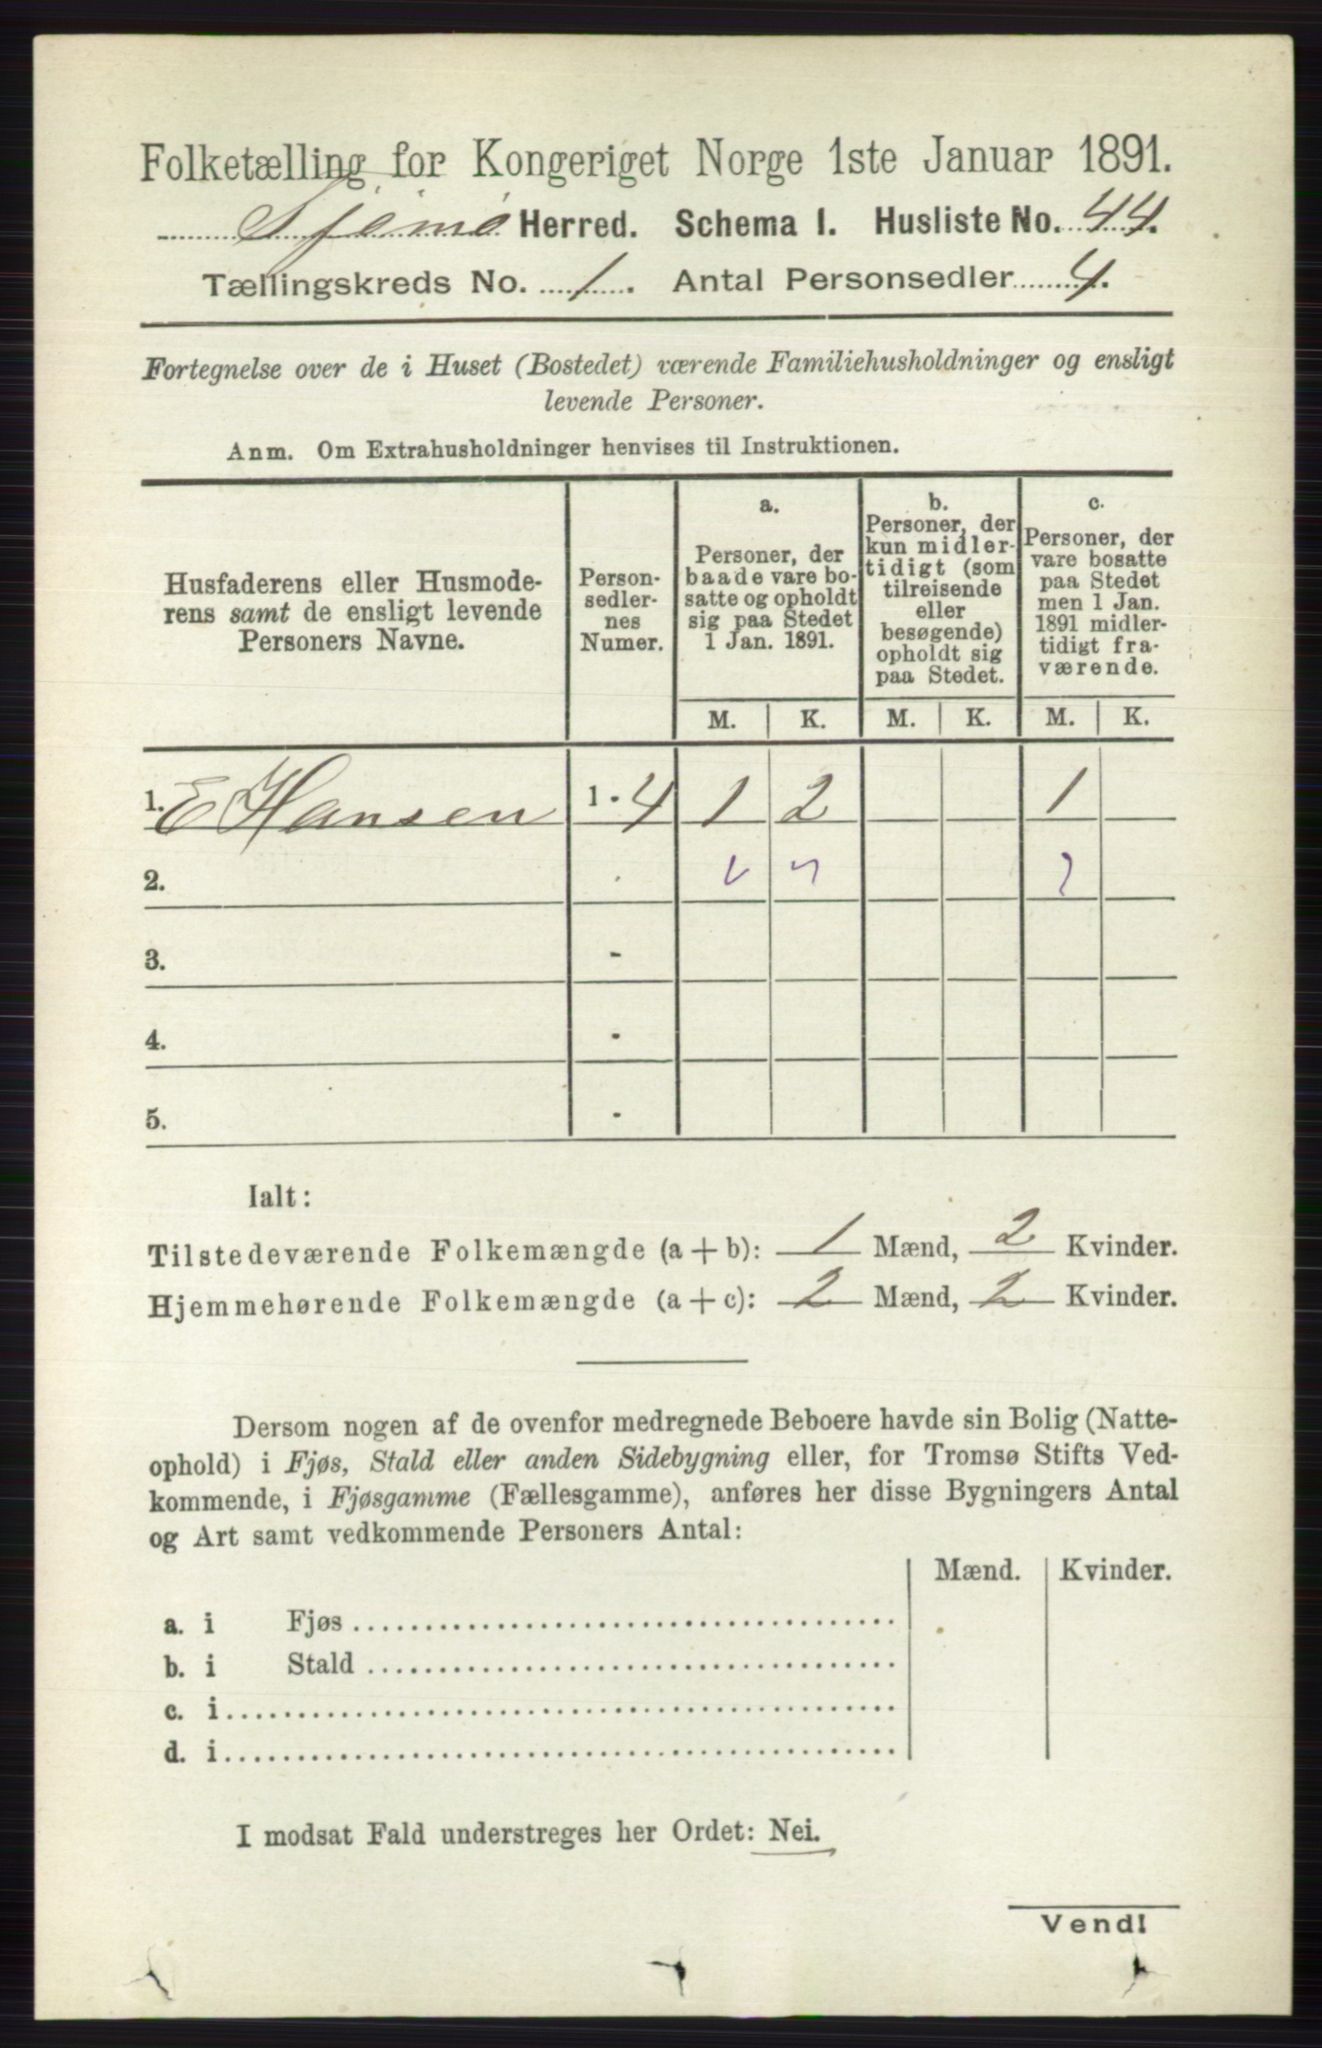 Folketælling for Kongeriget Norge 1ste Januar 1891.
Tjømø Herred. Schema I. Husliste No. 44.
Tællingskreds No. 1. Antal Personsedler 4.
Fortegnelse over de i Huset (Bostedet) værende Familiehusholdninger og ensligt
levende Personer.
Anm. Om Extrahusholdninger henvises til Instruktionen.
Husfaderens eller Husmode-
rens samt de ensligt levende
Personers Navne.
Person-
sedler-
nes
Numer.
a.
Personer, der
baade vare bo-
satte og opholdt
sig paa Stedet
1 Jan. 1891.
b.
Personer, der
kun midler-
tidigt (som
tilreisende
eller
besøgende)
opholdt sig
paa Stedet.
c.
Personer, der
vare bosatte
paa Stedet
men 1 Jan.
1891 midler-
tidigt fra-
værende.
M. K. M. K. M. K.
1. E Hansen 1 - 4 1 2 1
2. -
3. -
4. -
5. -
Ialt:
Tilstedeværende Folkemængde (a + b): 1 Mænd, 2 Kvinder.
Hjemmehørende Folkemængde (a + c): 2 Mænd, 2 Kvinder.
Dersom nogen af de ovenfor medregnede Beboere havde sin Bolig (Natte-
ophold) i Fjøs, Stald eller anden Sidebygning eller, for Tromsø Stifts Ved-
kommende, i Fjøsgamme (Fællesgamme), anføres her disse Bygningers Antal
og Art samt vedkommende Personers Antal:
Mænd. Kvinder.
a. i Fjøs
b. i Stald
c. i
d. i
I modsat Fald understreges her Ordet: Nei.
Vend!